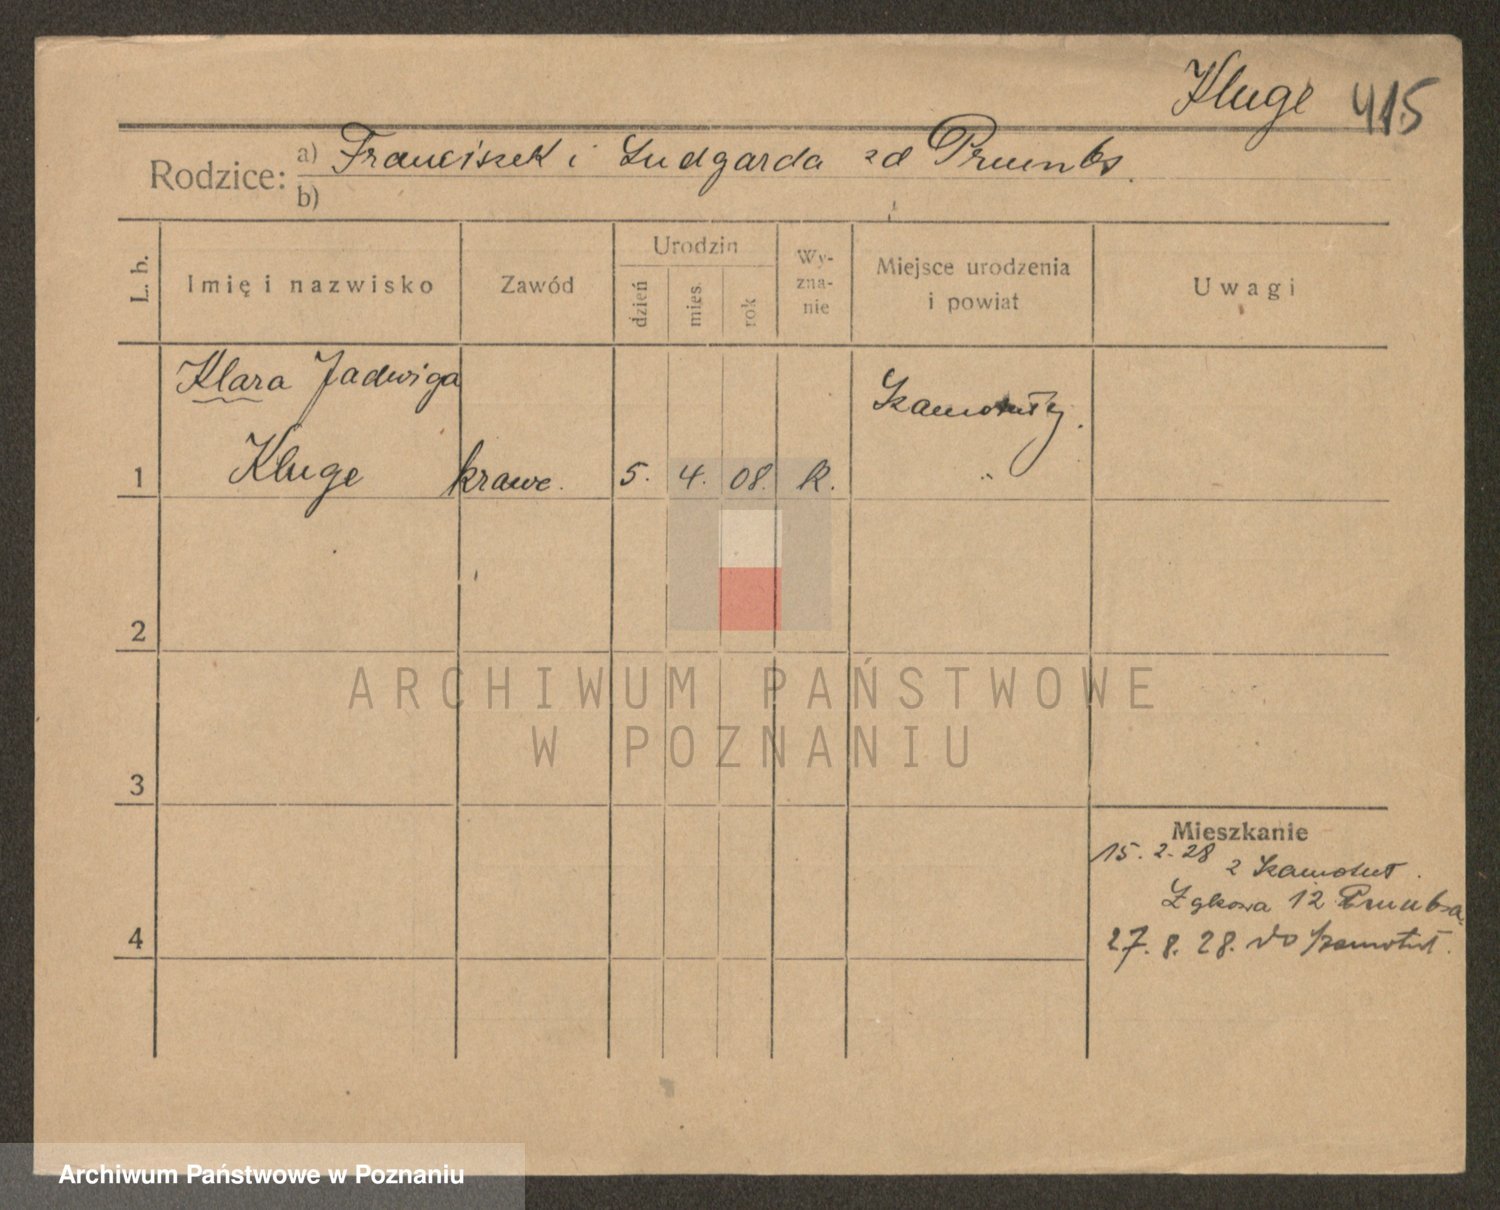 Kluge 415
Rodzice: a) Franciszek i Ludgarda zd Prumbs.
b)
L. b.
Imię i nazwisko
Zawód
Urodzin
dzień
mies.
rok
Wy-
zna-
nie
Miejsce urodzenia
i powiat
Uwagi
Klara Jadwiga
Szamotuły.
1 Kluge krawc. 5. 4. 08. k. "
2
ARCHIWUM PAŃSTWOWE
W POZNANIU
3
Mieszkanie
15. 2. 28
z Szamotuł.
12
4
27. 8. 28. do Szamotuł.
Archiwum Państwowe w Poznaniu